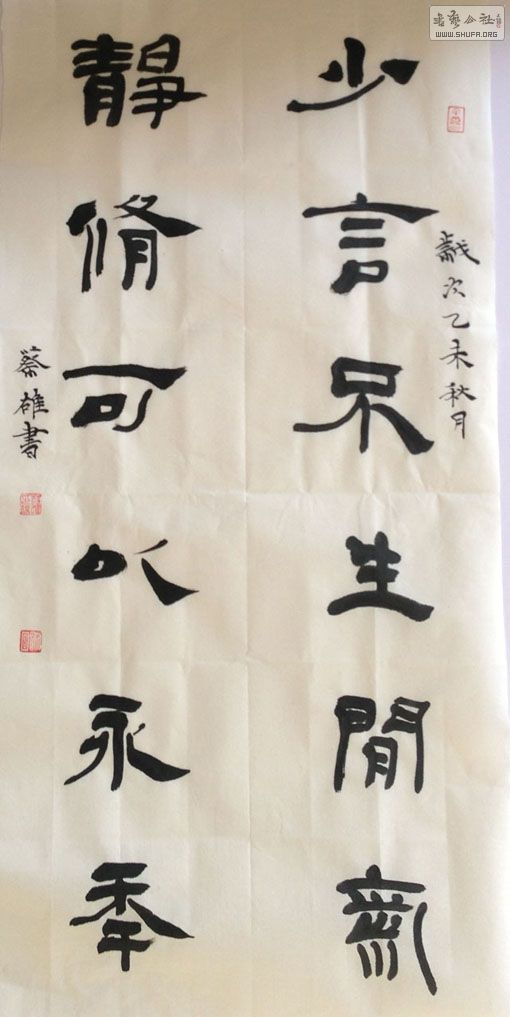 書藝公社
WWW.SHUFA.ORG
少言不生閒氣
歲次乙未秋月
靜脩可以永秊
蔡雄書